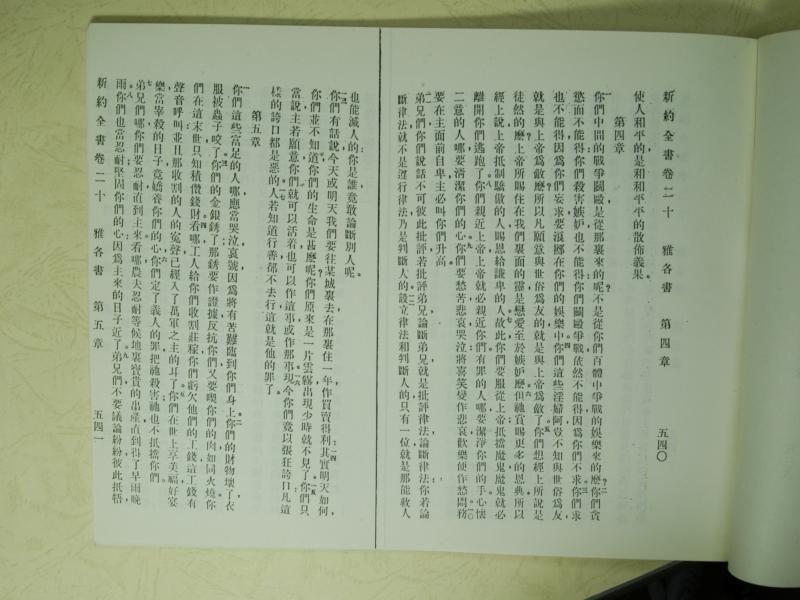 新約全書卷二十　雅各書　第四章　五四〇
使人和平的是和和平平的散佈義果。
第四章
你們中間的戰爭鬬毆是從那裏來的呢不是從你們百體中爭戰的娛樂來的麼你們貪
慾而不能得你們殺害嫉妒也不能得你們鬬毆爭戰依然不能得因爲你們不求你們求
也不能得因爲你們妄求要浪擲在你們的娛樂中你們這些淫婦阿豈不知與世俗爲友
就是與上帝爲敵麼所以凡願意與世俗爲友的就是與上帝爲敵了你們想經上所說是
徒然的麼上帝所賜住在我們裏面的靈是戀愛至於嫉妒麼但祂賞賜更多的恩典所以
經上說上帝抵制驕傲的人賜恩給謙卑的人故此你們要服從上帝抵擋魔鬼魔鬼就必
離開你們逃跑了你們親近上帝上帝就必親近你們有罪的人哪要潔淨你們的手心懷
二意的人哪要清潔你們的心你們要愁苦悲哀哭泣將喜笑變作悲哀歡樂便作愁悶務
要在主面前自卑主必叫你們升高
弟兄們你們說話不可彼此批評若批評弟兄論斷弟兄就是批評律法論斷律法你若論
斷律法就不是遵行律法乃是判斷人的設立律法和判斷人的只有一位就是那能救人
也能滅人的你是誰竟敢論斷別人呢。
你們有話說今天或明天我們要往某城裏去在那裏住一年作買賣得利其實明天如何
你們並不知道你們的生命是甚麼呢你們原來是一片雲霧出現少時就不見了你們只
當說主若願意你們就可以活着也可以作這事或作那事現今你們竟以張狂誇口凡這
樣的誇口都是惡的人若知道行善卻不去行這就是他的罪了。
第五章
你們這些富足的人哪應當哭泣哀號因爲將有苦難臨到你們身上你們的財物壞了衣
服被蟲子咬了你們的金銀銹了那銹要作證據反抗你們又要喫你們的肉如同火燒你
們在這末世只知積儹錢財看哪工人給你們收割莊稼你們虧欠他們的工錢這工錢有
聲音呼叫並且那收割的人的冤聲已經入了萬軍之主的耳了你們在世上享美福好宴
樂當宰殺的日子竟嬌養你們的心你們定了義人的罪把祂殺害祂也不抵擋你們
弟兄們哪你們要忍耐直到主來看哪農夫忍耐等候地裏寶貴的出產直到得了早雨晚
雨你們也當忍耐堅固你們的心因爲主來的日子近了弟兄們不要議論紛紛彼此抵牾
新約全書卷二十　雅各書　第五章　五四一